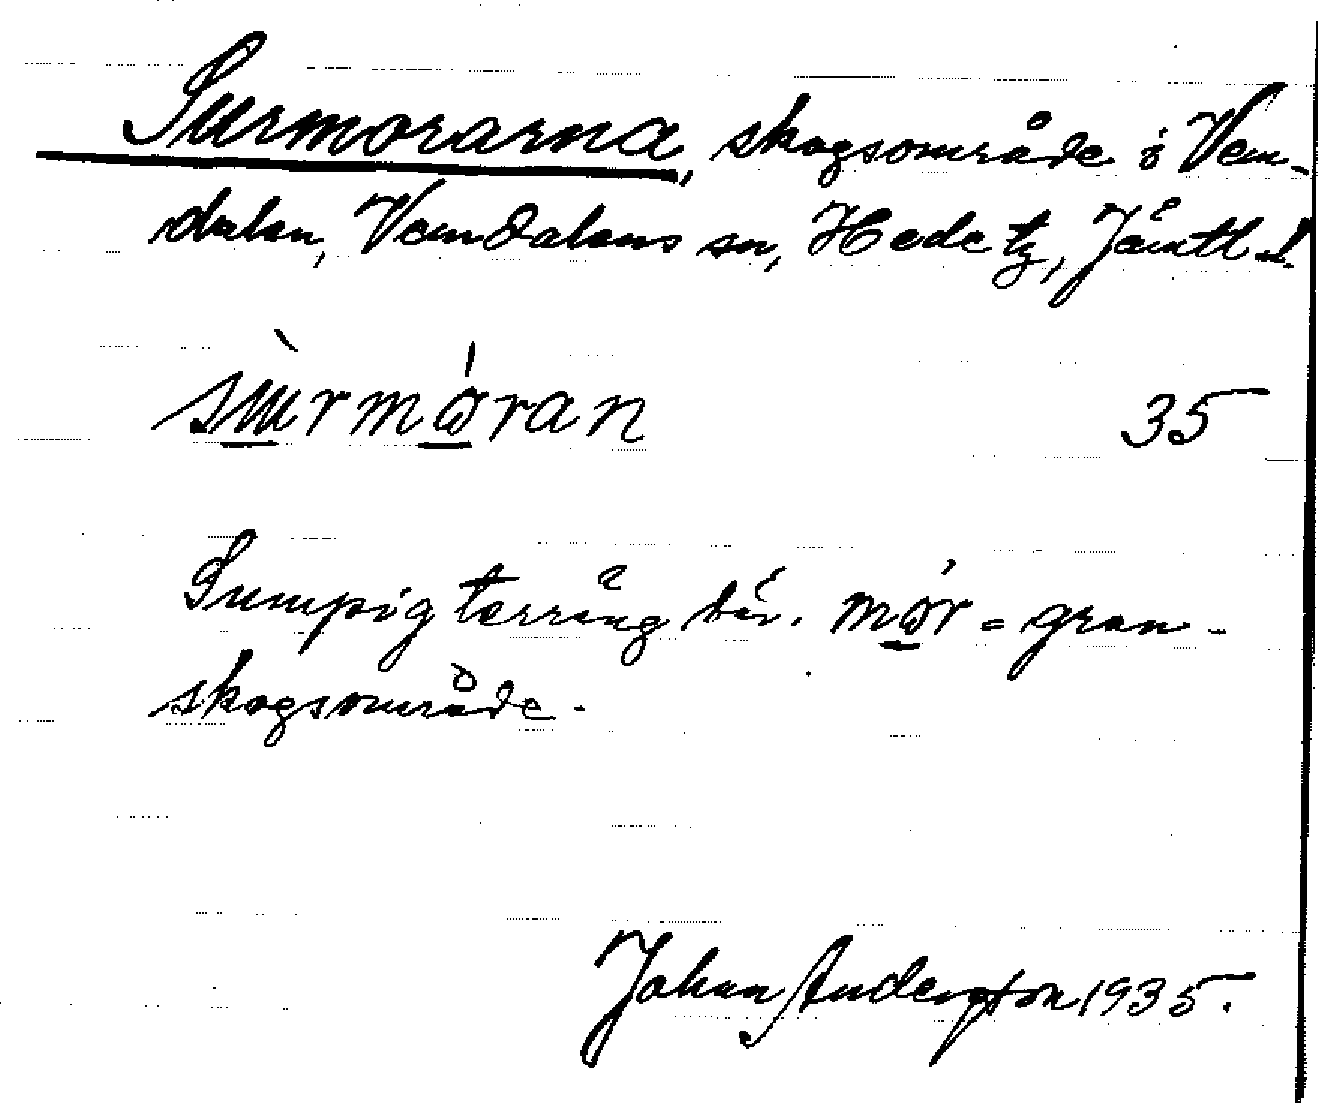 Surmorarna, skogsområde i Vem-
dalen, Vemdalens sn, Hede tg, Jämtl. l.
sùrmóran 35
Sumpig terräng där. mór = gran-
skogsområde.
Johan Andersson 1935.